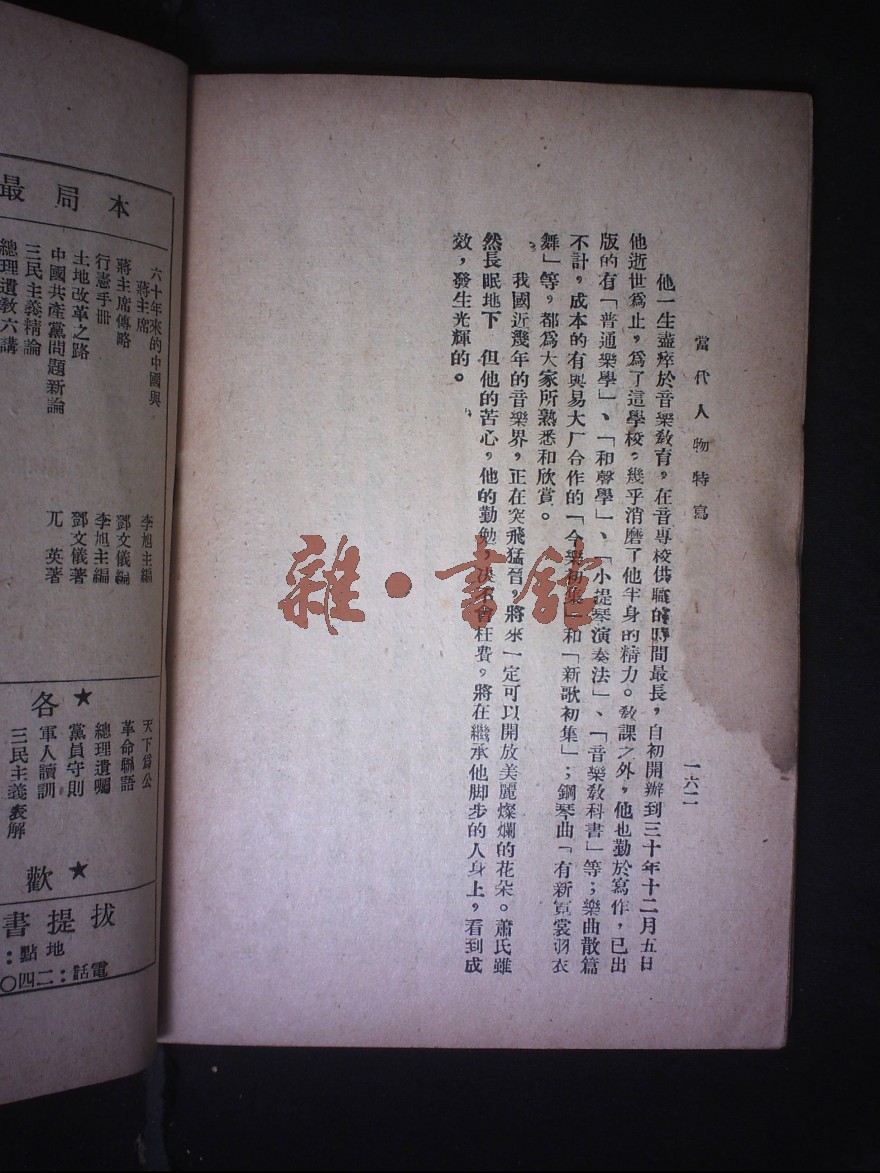 當代人物特寫
一六二
他一生盡瘁於音樂教育，在音專校供職的時間最長，自初開辦到三十年十二月五日
他逝世爲止，爲了這學校，幾乎消磨了他半身的精力。教課之外，他也勤於寫作，已出
版的有「普通樂學」、「和聲學」、「小提琴演奏法」、「音樂教科書」等；樂曲散篇
不計，成本的有與易大厂合作的「今樂初集」和「新歌初集」；鋼琴曲「有新霓裳羽衣
舞」等，都爲大家所熟悉和欣賞。
我國近幾年的音樂界，正在突飛猛晉，將來一定可以開放美麗燦爛的花朵。蕭氏雖
然長眠地下，但他的苦心，他的勤勉，決不會枉費，將在繼承他脚步的人身上，看到成
效，發生光輝的。
本局最
六十年來的中國與蔣主席 李旭主編
蔣主席傳略 鄧文儀編
行憲手冊 李旭主編
土地改革之路 鄧文儀著
中國共產黨問題新論 兀英著
三民主義精論
總理遺教六講
★各
天下爲公
革命聯語
總理遺囑
黨員守則
軍人讀訓
三民主義表解
★歡
拔提書
地點：
電話：二四〇
雜·書館